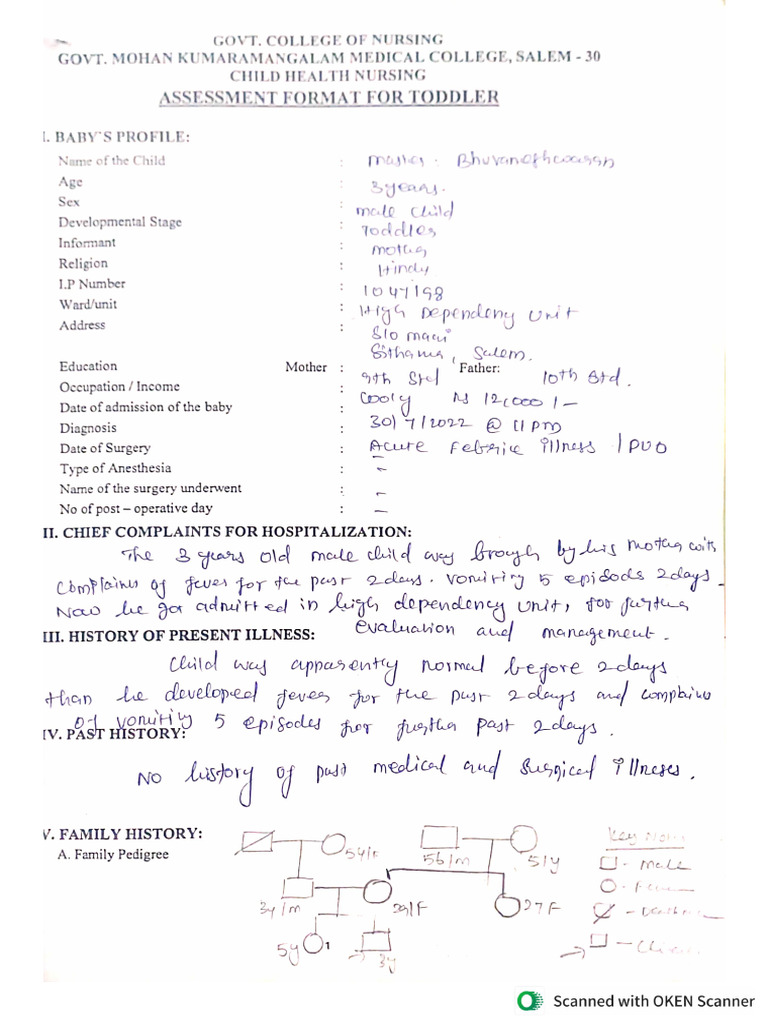 GOVT. COLLEGE OF NURSING
GOVT. MOHAN KUMARAMANGALAM MEDICAL COLLEGE, SALEM - 30
CHILD HEALTH NURSING
ASSESSMENT FORMAT FOR TODDLER
I. BABY'S PROFILE:
Name of the Child : Master.
Age : 3 years.
Sex : male child
Developmental Stage : Toddler
Informant : Mother
Religion : Hindu
I.P Number : 1047198
Ward/unit : High Dependency Unit
Address : S/o
Salem.
Education Mother : 9th Std Father: 10th Std.
Occupation / Income : Cooly Rs 12,000/-
Date of admission of the baby : 30/7/2022 @ 11 PM
Diagnosis : Acute Febrice illness / PUO
Date of Surgery : -
Type of Anesthesia : -
Name of the surgery underwent : -
No of post – operative day : -
II. CHIEF COMPLAINTS FOR HOSPITALIZATION:
The 3 years old male child was brough by his mother with
Complains of fever for the past 2days. vomiting 5 episods 2days.
Now he got admitted in high dependency unit, for further
evaluation and management.
III. HISTORY OF PRESENT ILLNESS:
Child was apparently normal before 2days
than he developed fever for the past 2days and complains
of vomiting 5 episodes for further past 2days.
IV. PAST HISTORY:
No history of past medical and surgical illneses.
V. FAMILY HISTORY:
A. Family Pedigree
54/F 56/m 51y
29/F 27F
5y 1 3y
Key Note
- male
Scanned with OKEN Scanner